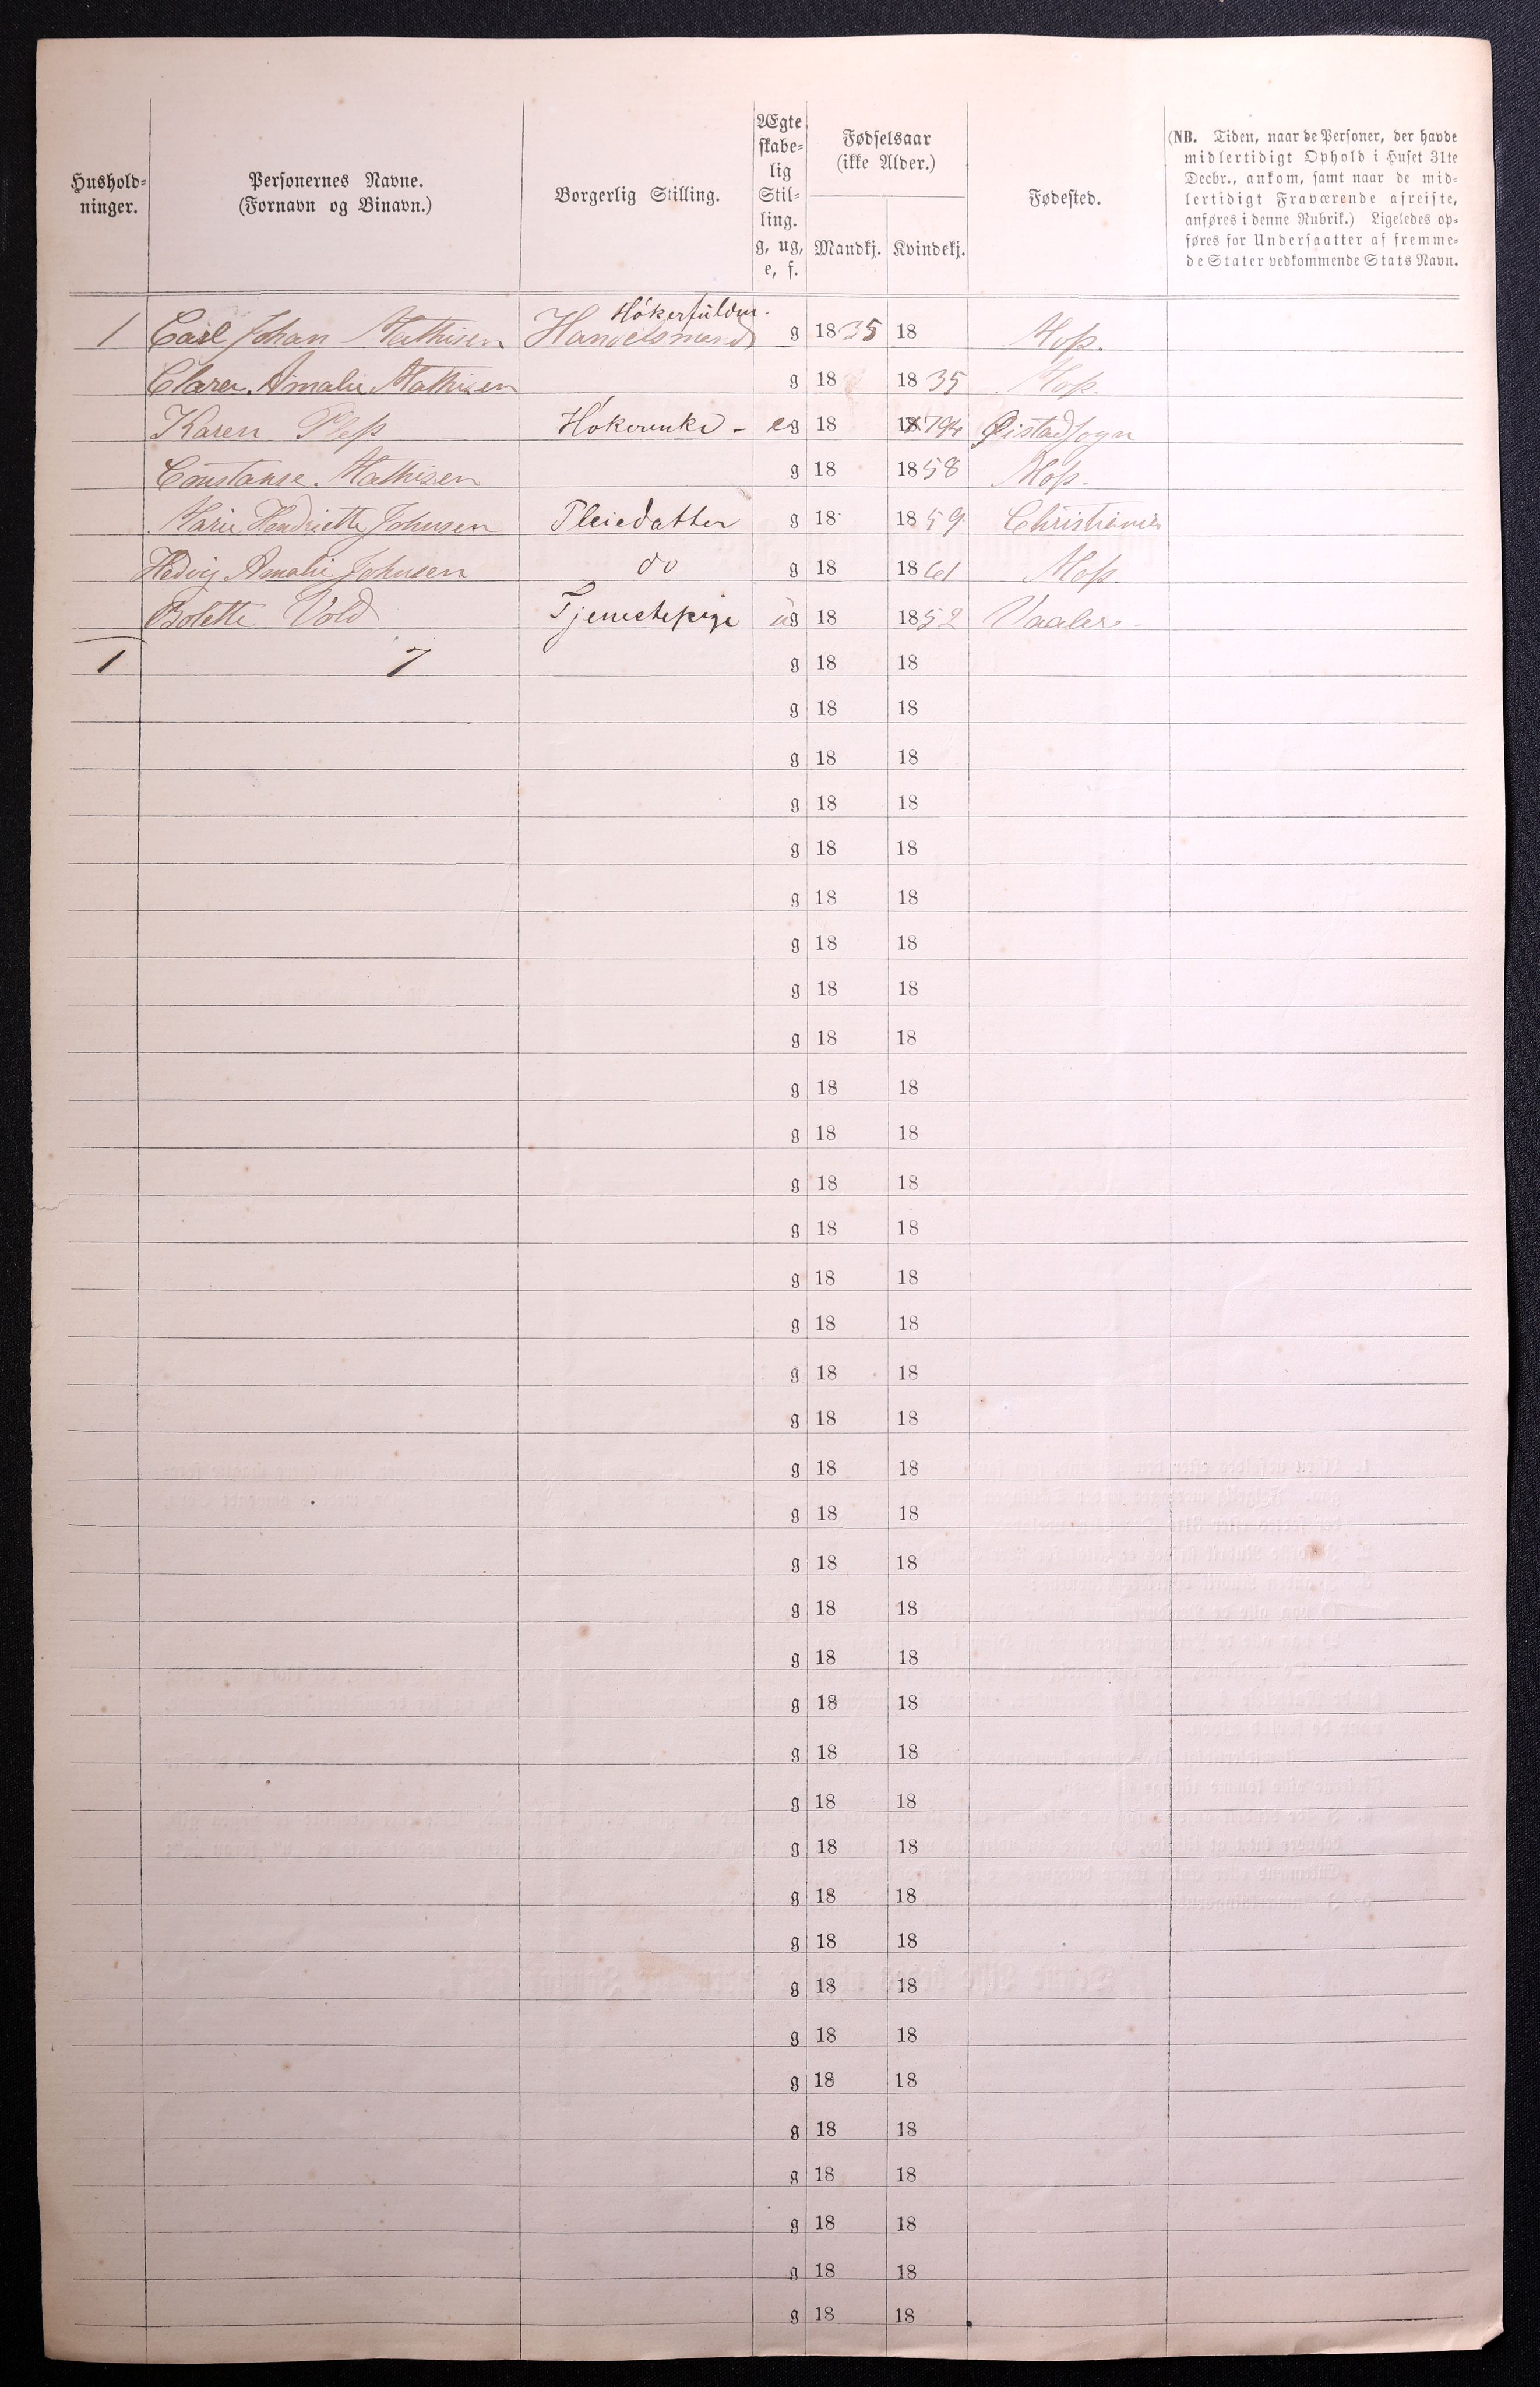 Hushold-
ninger.
Personernes Navne.
(Fornavn og Binavn.)
Borgerlig Stilling.
Ægte
skabe-
lig
Stil-
ling.
g, ug,
e, f.
Fødselsaar
(ikke Alder.)
Mandkj.
Kvindekj.
Fødested.
(NB. Tiden, naar de Personer, der havde
midlertidigt Ophold i Huset 31te
Decbr., ankom, samt naar de mid-
lertidigt Fraværende afreiste,
anføres i denne Rubrik.) Ligeledes op-
føres for Undersaatter af fremme-
de Stater vedkommende Stats Navn.
Hökerfuldm.
1 Carl Johan Mathisen Handelsmand g 1835 18 Moss.
Clara Amalie Mathisen g 18 1835 Moss.
Karen Pless Hökerenke - eg 18 1794 Øistadsogn
Constanse Mathisen g 18 1858 Moss.
Marie Hendriette Johnsen Pleiedatter g 18 1859 Christiania
Hedvig Amalie Johnsen do g 18 1861 Moss.
Bolette Vold Tjenestepige ug 18 1852 Vaaler.
1 7 g 18 18
g 18 18
g 18 18
g 18 18
g 18 18
g 18 18
g 18 18
g 18 18
g 18 18
g 18 18
g 18 18
g 18 18
g 18 18
g 18 18
g 18 18
g 18 18
g 18 18
g 18 18
g 18 18
g 18 18
g 18 18
g 18 18
g 18 18
g 18 18
g 18 18
g 18 18
g 18 18
g 18 18
g 18 18
g 18 18
g 18 18
g 18 18
g 18 18
g 18 18
g 18 18